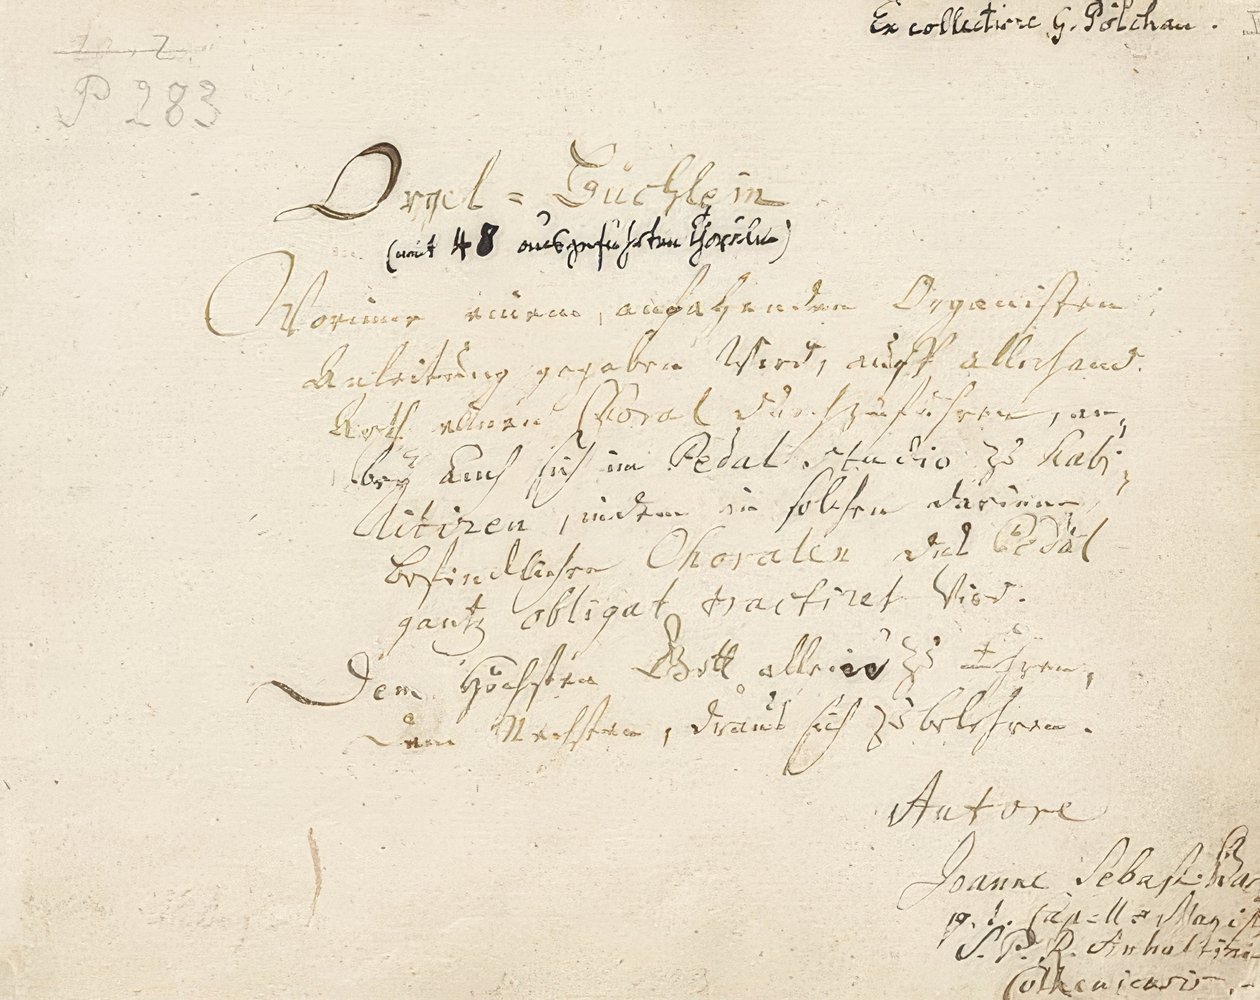 Ex collectione G. Pölchau.
P 283
Orgel=Büchlein
(mit 48 ausgeführten Chorälen)
Worinne einem anfahenden Organisten
Anleitung gegeben wird, auff allerhand
Arth einen Choral durchzuführen, an-
bey auch sich im Pedal studio zu habi-
litiren, indem in solchen darinne
befindlichen Choralen das Pedal
gantz obligat tractiret wird.
Dem Höchsten Gott allein zu Ehren,
dem Nechsten, draus sich zu belehren.
Autore
Joanne Sebast. Bac
p. t. Capellæ Magist
S. P. R. Anhaltini-
Cotheniensis.